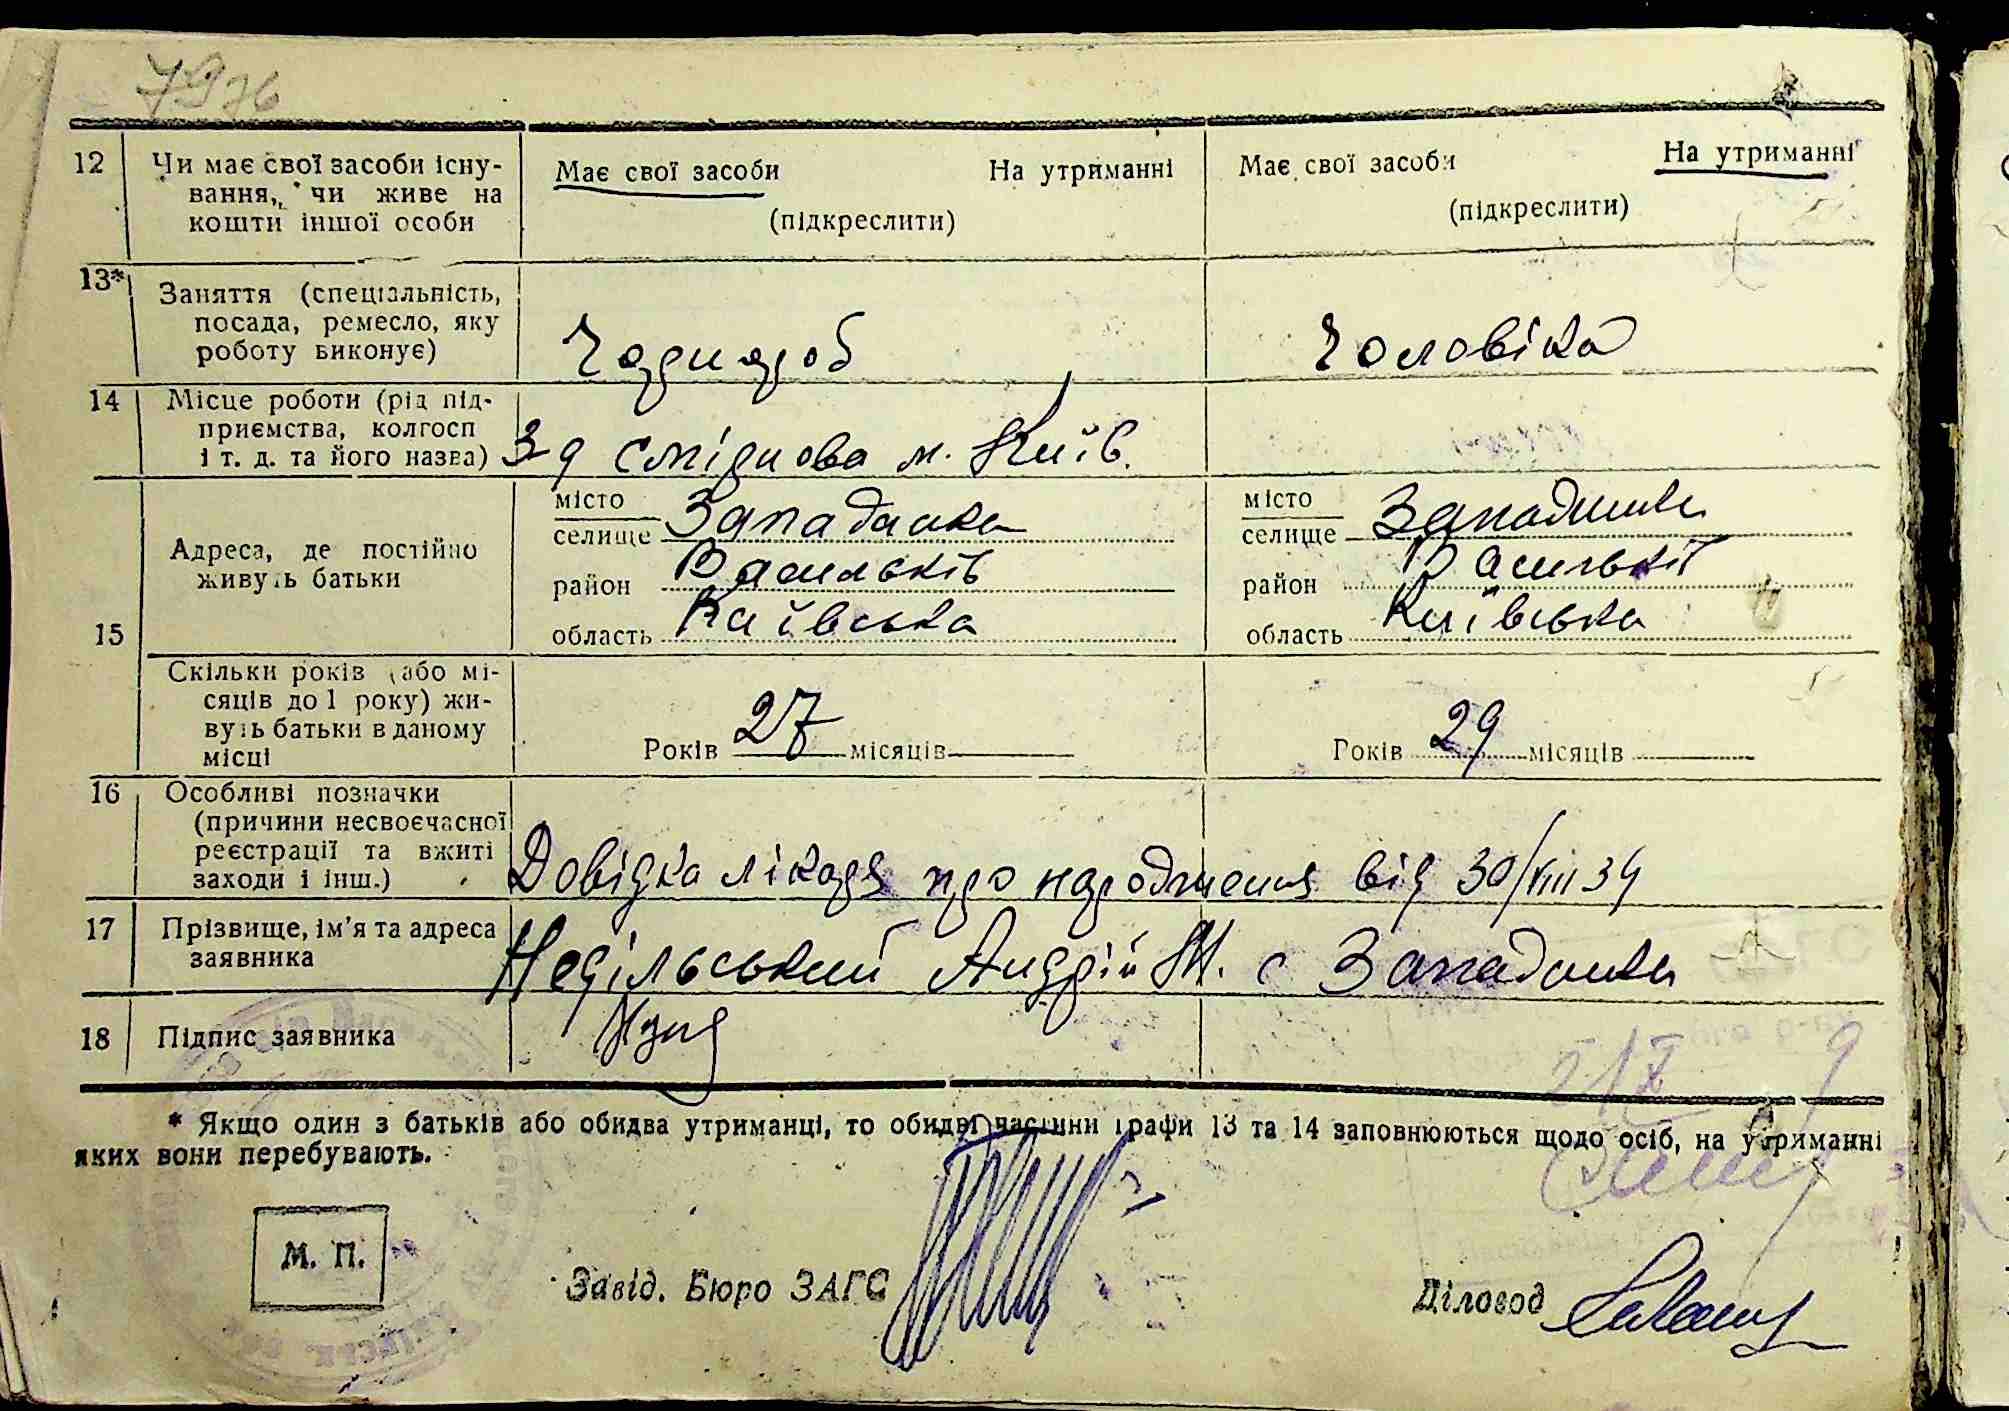 7976
12 Чи має свої засоби існу-
вання, чи живе на
кошти іншої особи
Має свої засоби На утриманні
(підкреслити)
Має свої засоби На утриманні
(підкреслити)
13* Заняття (спеціальність,
посада, ремесло, яку
роботу виконує)
Чоловіка
14 Місце роботи (рід під-
приємства, колгосп
і т. д. та його назва)
м. Київ.
15 Адреса, де постійно
живуть батьки
місто
селище Западинка
район Васильків
область Київська
місто
селище Западинка
район Васильків
область Київська
Скільки років (або мі-
сяців до 1 року) жи-
вуть батьки в даному
місці
Років 27 місяців
Років 29 місяців
16 Особливі позначки
(причини несвоєчасної
реєстрації та вжиті
заходи і інш.)
Довідка лікаря про народження від 30/VIII 34
17 Прізвище, ім'я та адреса
заявника
Недільський Андрій М. с Западинка
18 Підпис заявника
* Якщо один з батьків або обидва утриманці, то обидві частини графи 13 та 14 заповнюються щодо осіб, на утриманні
яких вони перебувають.
М. П.
Завід. Бюро ЗАГС
Діловод